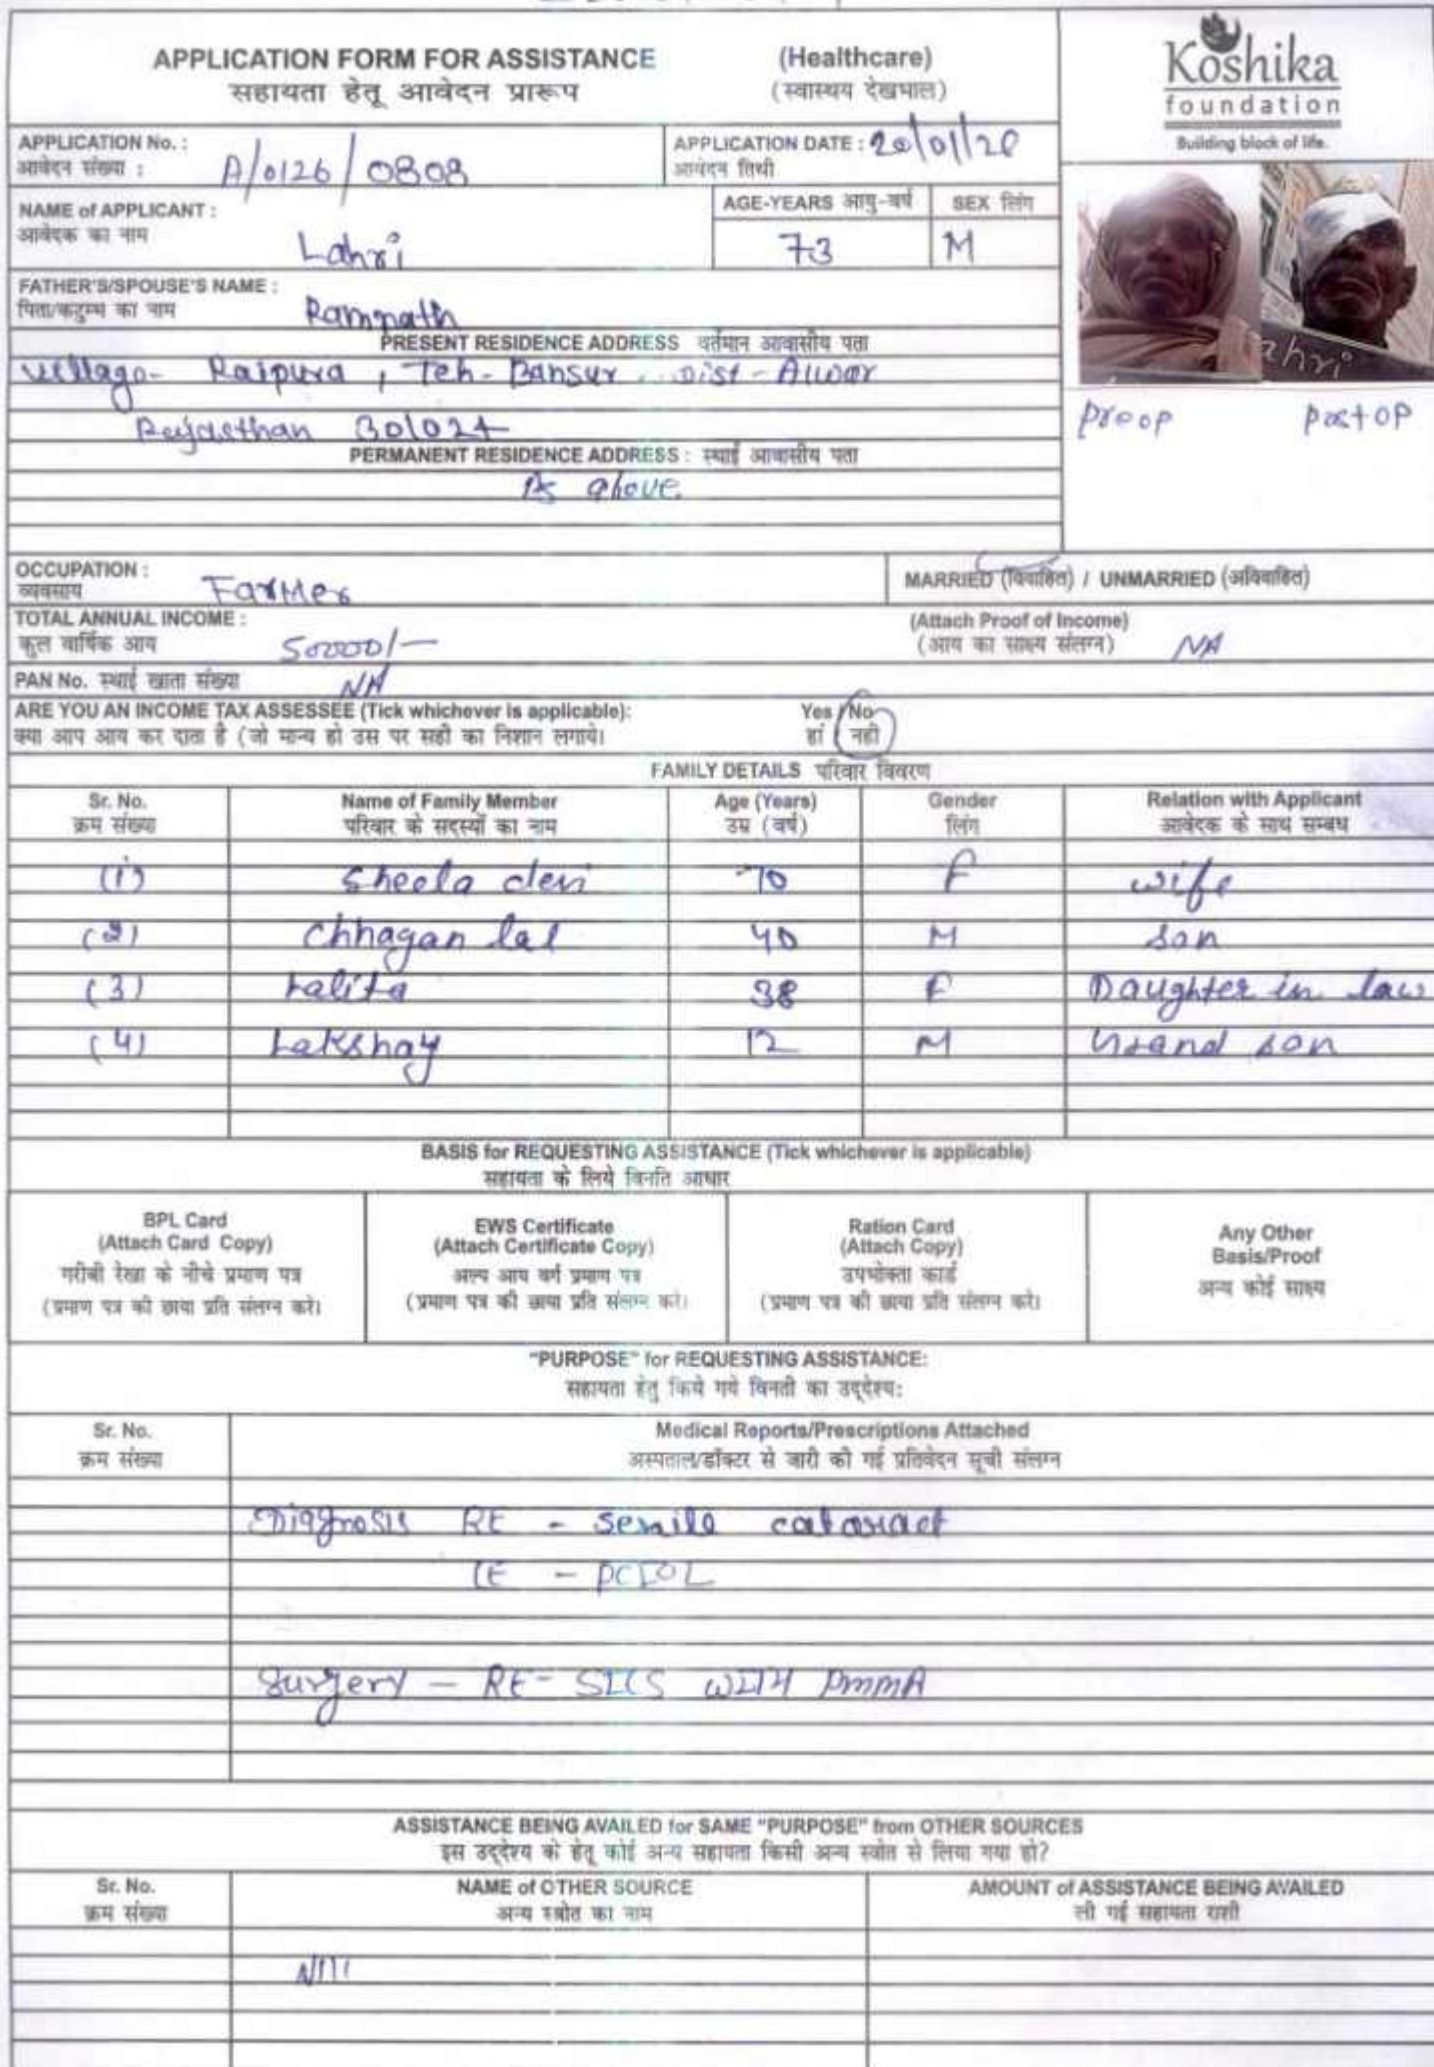 APPLICATION FORM FOR ASSISTANCE (Healthcare)
सहायता हेतू आवेदन प्रारूप (स्वास्थय देखभाल)
Koshika
foundation
Building block of life.
APPLICATION No. : A/0126/0808
आवेदन संख्या :
APPLICATION DATE : 20/01/20
आवेदन तिथी
NAME of APPLICANT : Lahri
आवेदक का नाम
AGE-YEARS आयु-वर्ष 73
SEX लिंग M
FATHER'S/SPOUSE'S NAME : Ramnath
पिता/कटुम्भ का नाम
PRESENT RESIDENCE ADDRESS वर्तमान आवासीय पता
village- Raipura, Teh- Bansur Dist- Alwar
Rajasthan 301024
PERMANENT RESIDENCE ADDRESS : स्थाई आवासीय पता
As above.
ahri
preop postop
OCCUPATION : Farmer
व्यवसाय
MARRIED (विवाहित) / UNMARRIED (अविवाहित)
TOTAL ANNUAL INCOME : 50000/-
कुल वार्षिक आय
(Attach Proof of Income)
(आय का साक्ष्य संलग्न) NA
PAN No. स्थाई खाता संख्या NA
ARE YOU AN INCOME TAX ASSESSEE (Tick whichever is applicable): Yes / No
क्या आप आय कर दाता है (जो मान्य हो उस पर सही का निशान लगाये। हां / नही
FAMILY DETAILS परिवार विवरण
Sr. No. Name of Family Member Age (Years) Gender Relation with Applicant
क्रम संख्या परिवार के सदस्यों का नाम उम्र (वर्ष) लिंग आवेदक के साथ सम्बध
(1) Sheela devi 70 F wife
(2) Chhagan lal 40 M son
(3) Lalita 38 F Daughter in law
(4) Lakshay 12 M Grand son
BASIS for REQUESTING ASSISTANCE (Tick whichever is applicable)
सहायता के लिये विनति आधार
BPL Card
(Attach Card Copy)
गरीबी रेखा के नीचे प्रमाण पत्र
(प्रमाण पत्र की छाया प्रति संलग्न करे।
EWS Certificate
(Attach Certificate Copy)
अल्प आय वर्ग प्रमाण पत्र
(प्रमाण पत्र की छाया प्रति संलग्न करे।
Ration Card
(Attach Copy)
उपभोक्ता कार्ड
(प्रमाण पत्र की छाया प्रति संलग्न करे।
Any Other
Basis/Proof
अन्य कोई साक्ष्य
"PURPOSE" for REQUESTING ASSISTANCE:
सहायता हेतु किये गये विनती का उद्देश्य:
Sr. No. Medical Reports/Prescriptions Attached
क्रम संख्या अस्पताल/डॉक्टर से जारी की गई प्रतिवेदन सूची संलग्न
Diagnosis RE - senile cataract
LE - PCIOL
Surgery - RE- SICS WITH PMMA
ASSISTANCE BEING AVAILED for SAME "PURPOSE" from OTHER SOURCES
इस उद्देश्य को हेतू कोई अन्य सहायता किसी अन्य स्त्रोत से लिया गया हो?
Sr. No. NAME of OTHER SOURCE AMOUNT of ASSISTANCE BEING AVAILED
क्रम संख्या अन्य स्त्रोत का नाम ली गई सहायता राशी
Nill